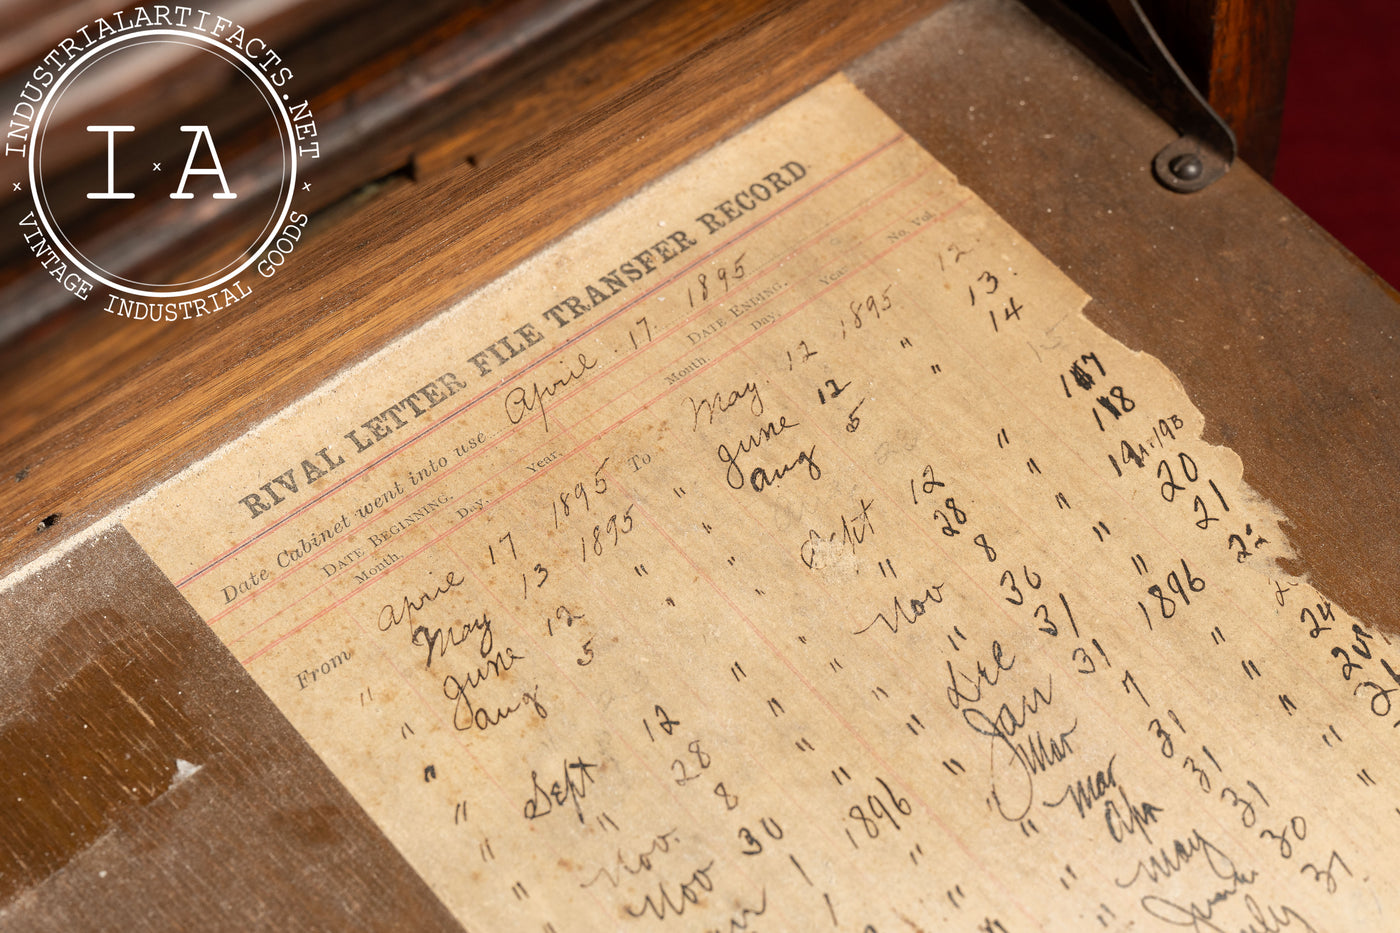 INDUSTRIALARTIFACTS.NET
I × A
VINTAGE INDUSTRIAL GOODS
RIVAL LETTER FILE TRANSFER RECORD
Date Cabinet went into use April 17. 1895
DATE BEGINNING. DATE ENDING.
Month. Day. Year. Month. Day. Year. No. Vol.
From April 17 1895 To May. 12 1895 12.
" May 13 1895 " June 12 " 13.
" June 12 " " Aug 5 " 14
" Aug 5 " "
" Sept 12 " " Sept 12 " 117
" " 28 " " " 28 " 118
" Nov. 8 " " Nov 8 "
" Nov 30 " " " 30 " 20
1 1896 " Dec 31 " 21
" Jan 31 1896
" 7 "
" Mar 31 " 24
Apr 31 "
" May 31 "
" June 30 "
July 31.